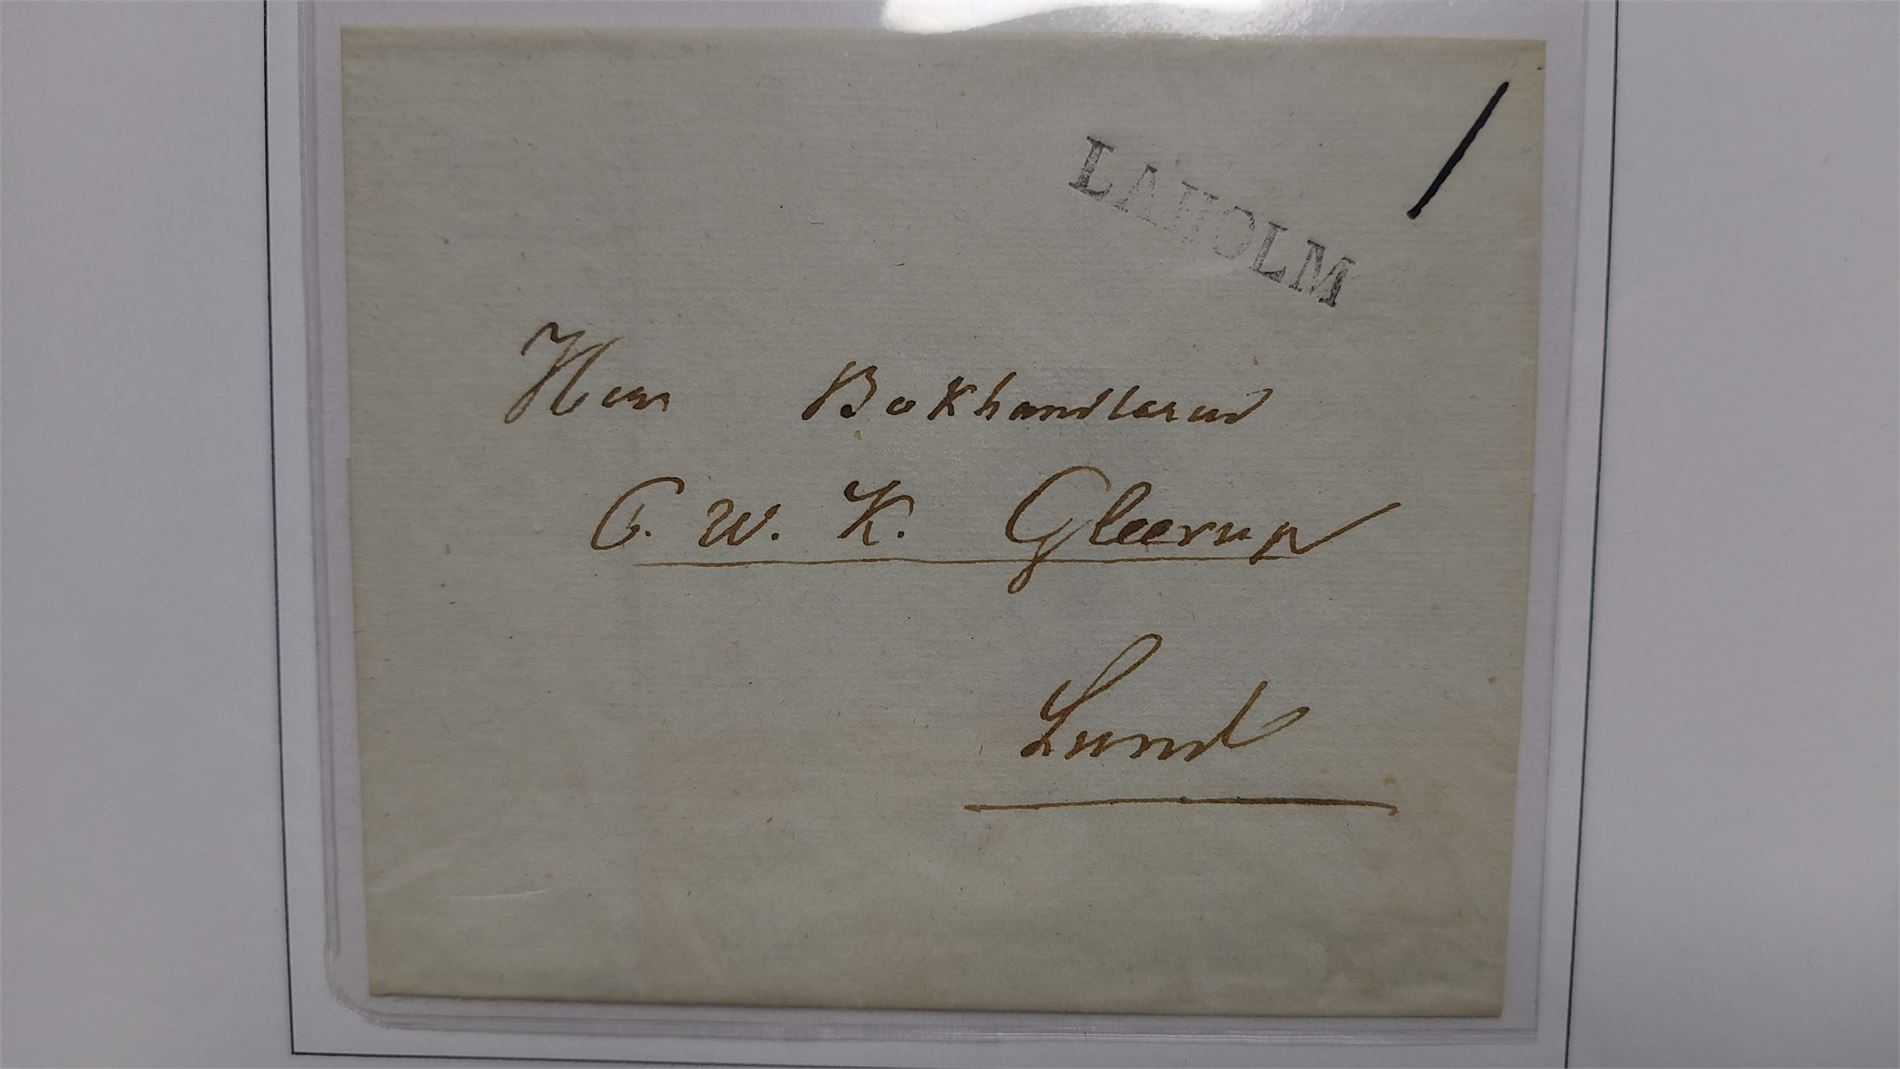 LAHOLM
Herr Bokhandleren
C. W. K. Gleerup
Lund